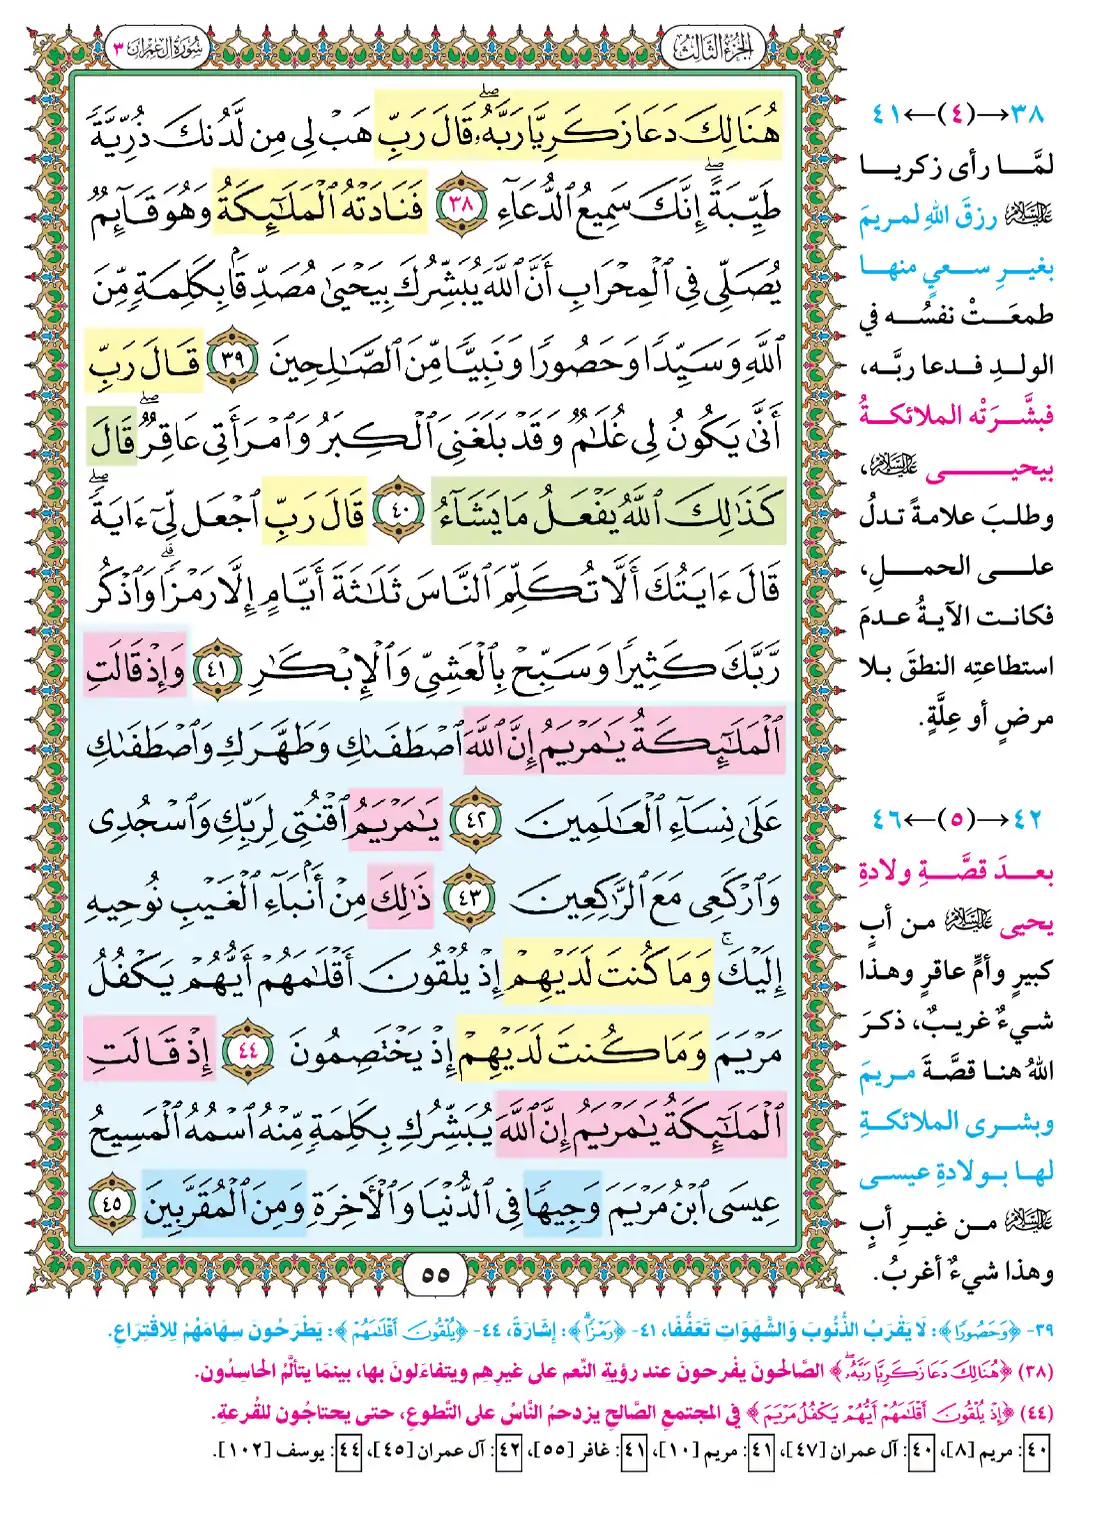 الجزء الثالث
سورة آل عمران ٣
هُنَالِكَ دَعَا زَكَرِيَّا رَبَّهُۥۖ قَالَ رَبِّ هَبۡ لِي مِن لَّدُنكَ ذُرِّيَّةٗ
طَيِّبَةًۖ إِنَّكَ سَمِيعُ ٱلدُّعَآءِ ٣٨ فَنَادَتۡهُ ٱلۡمَلَٰٓئِكَةُ وَهُوَ قَآئِمٞ
يُصَلِّي فِي ٱلۡمِحۡرَابِ أَنَّ ٱللَّهَ يُبَشِّرُكَ بِيَحۡيَىٰ مُصَدِّقَۢا بِكَلِمَةٖ مِّنَ
ٱللَّهِ وَسَيِّدٗا وَحَصُورٗا وَنَبِيّٗا مِّنَ ٱلصَّٰلِحِينَ ٣٩ قَالَ رَبِّ
أَنَّىٰ يَكُونُ لِي غُلَٰمٞ وَقَدۡ بَلَغَنِيَ ٱلۡكِبَرُ وَٱمۡرَأَتِي عَاقِرٞۖ قَالَ
كَذَٰلِكَ ٱللَّهُ يَفۡعَلُ مَا يَشَآءُ ٤٠ قَالَ رَبِّ ٱجۡعَل لِّيٓ ءَايَةٗۖ
قَالَ ءَايَتُكَ أَلَّا تُكَلِّمَ ٱلنَّاسَ ثَلَٰثَةَ أَيَّامٍ إِلَّا رَمۡزٗاۗ وَٱذۡكُر
رَّبَّكَ كَثِيرٗا وَسَبِّحۡ بِٱلۡعَشِيِّ وَٱلۡإِبۡكَٰرِ ٤١ وَإِذۡ قَالَتِ
ٱلۡمَلَٰٓئِكَةُ يَٰمَرۡيَمُ إِنَّ ٱللَّهَ ٱصۡطَفَىٰكِ وَطَهَّرَكِ وَٱصۡطَفَىٰكِ
عَلَىٰ نِسَآءِ ٱلۡعَٰلَمِينَ ٤٢ يَٰمَرۡيَمُ ٱقۡنُتِي لِرَبِّكِ وَٱسۡجُدِي
وَٱرۡكَعِي مَعَ ٱلرَّٰكِعِينَ ٤٣ ذَٰلِكَ مِنۡ أَنۢبَآءِ ٱلۡغَيۡبِ نُوحِيهِ
إِلَيۡكَۚ وَمَا كُنتَ لَدَيۡهِمۡ إِذۡ يُلۡقُونَ أَقۡلَٰمَهُمۡ أَيُّهُمۡ يَكۡفُلُ
مَرۡيَمَ وَمَا كُنتَ لَدَيۡهِمۡ إِذۡ يَخۡتَصِمُونَ ٤٤ إِذۡ قَالَتِ
ٱلۡمَلَٰٓئِكَةُ يَٰمَرۡيَمُ إِنَّ ٱللَّهَ يُبَشِّرُكِ بِكَلِمَةٖ مِّنۡهُ ٱسۡمُهُ ٱلۡمَسِيحُ
عِيسَى ٱبۡنُ مَرۡيَمَ وَجِيهٗا فِي ٱلدُّنۡيَا وَٱلۡأٓخِرَةِ وَمِنَ ٱلۡمُقَرَّبِينَ ٤٥
٥٥
٣٨→(٤)←٤١
لمَّا رأى زكريا
عليه السلام رزقَ اللهِ لمريمَ
بغيرِ سعيٍ منها
طمعَتْ نفسُه في
الولدِ فدعا ربَّه،
فبشَّرَتْه الملائكةُ
بيحيى عليه السلام،
وطلبَ علامةً تدلُ
على الحملِ،
فكانت الآيةُ عدمَ
استطاعتِه النطقَ بلا
مرضٍ أو عِلَّةٍ.
٤٢→(٥)←٤٦
بعدَ قصَّةِ ولادةِ
يحيى عليه السلام من أبٍ
كبيرٍ وأمٍّ عاقرٍ وهذا
شيءٌ غريبٌ، ذكرَ
اللهُ هنا قصَّةَ مريمَ
وبشرى الملائكةِ
لها بولادةِ عيسى
عليه السلام من غيرِ أبٍ
وهذا شيءٌ أغربُ.
٣٩- ﴿وَحَصُورًا﴾: لَا يَقْرَبُ الذُّنُوبَ وَالشَّهَوَاتِ تَعَفُّفًا، ٤١- ﴿رَمْزًا﴾: إِشَارَةً، ٤٤- ﴿يُلْقُونَ أَقْلَامَهُمْ﴾: يَطْرَحُونَ سِهَامَهُمْ لِلاقْتِرَاعِ.
(٣٨) ﴿هُنَالِكَ دَعَا زَكَرِيَّا رَبَّهُ﴾ الصَّالحونَ يفْرحون عند رؤيةِ النِّعم على غيرِهِم ويتفاءَلونَ بها، بينمَا يتألَّمُ الحاسِدُون.
(٤٤) ﴿إِذْ يُلْقُونَ أَقْلَامَهُمْ أَيُّهُمْ يَكْفُلُ مَرْيَمَ﴾ في المجتمعِ الصَّالحِ يزدحمُ النَّاسُ على التَّطوعِ، حتى يحتاجُون للقُرعةِ.
٤٠: مريم [٨]، ٤٠: آل عمران [٤٧]، ٤١: مريم [١٠]، ٤١: غافر [٥٥]، ٤٢: آل عمران [٤٥]، ٤٤: يوسف [١٠٢].